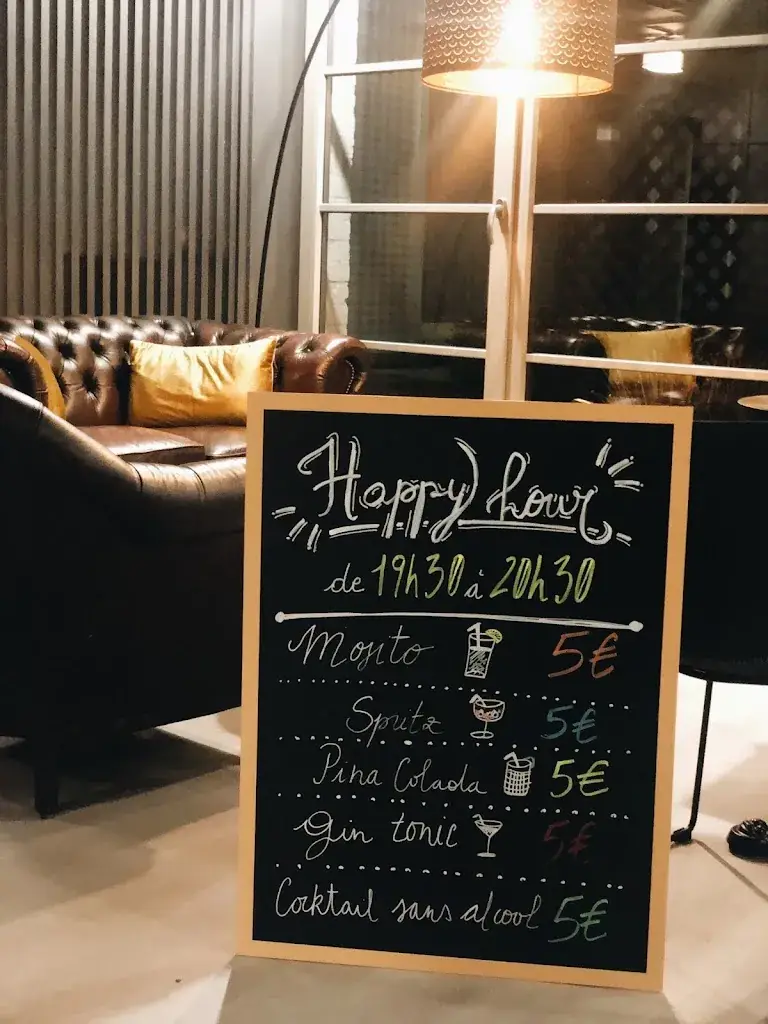 Happy hour
de 19h30 à 20h30
Mojito 5€
Spritz 5€
Pina Colada 5€
Gin tonic 5€
Cocktail sans alcool 5€